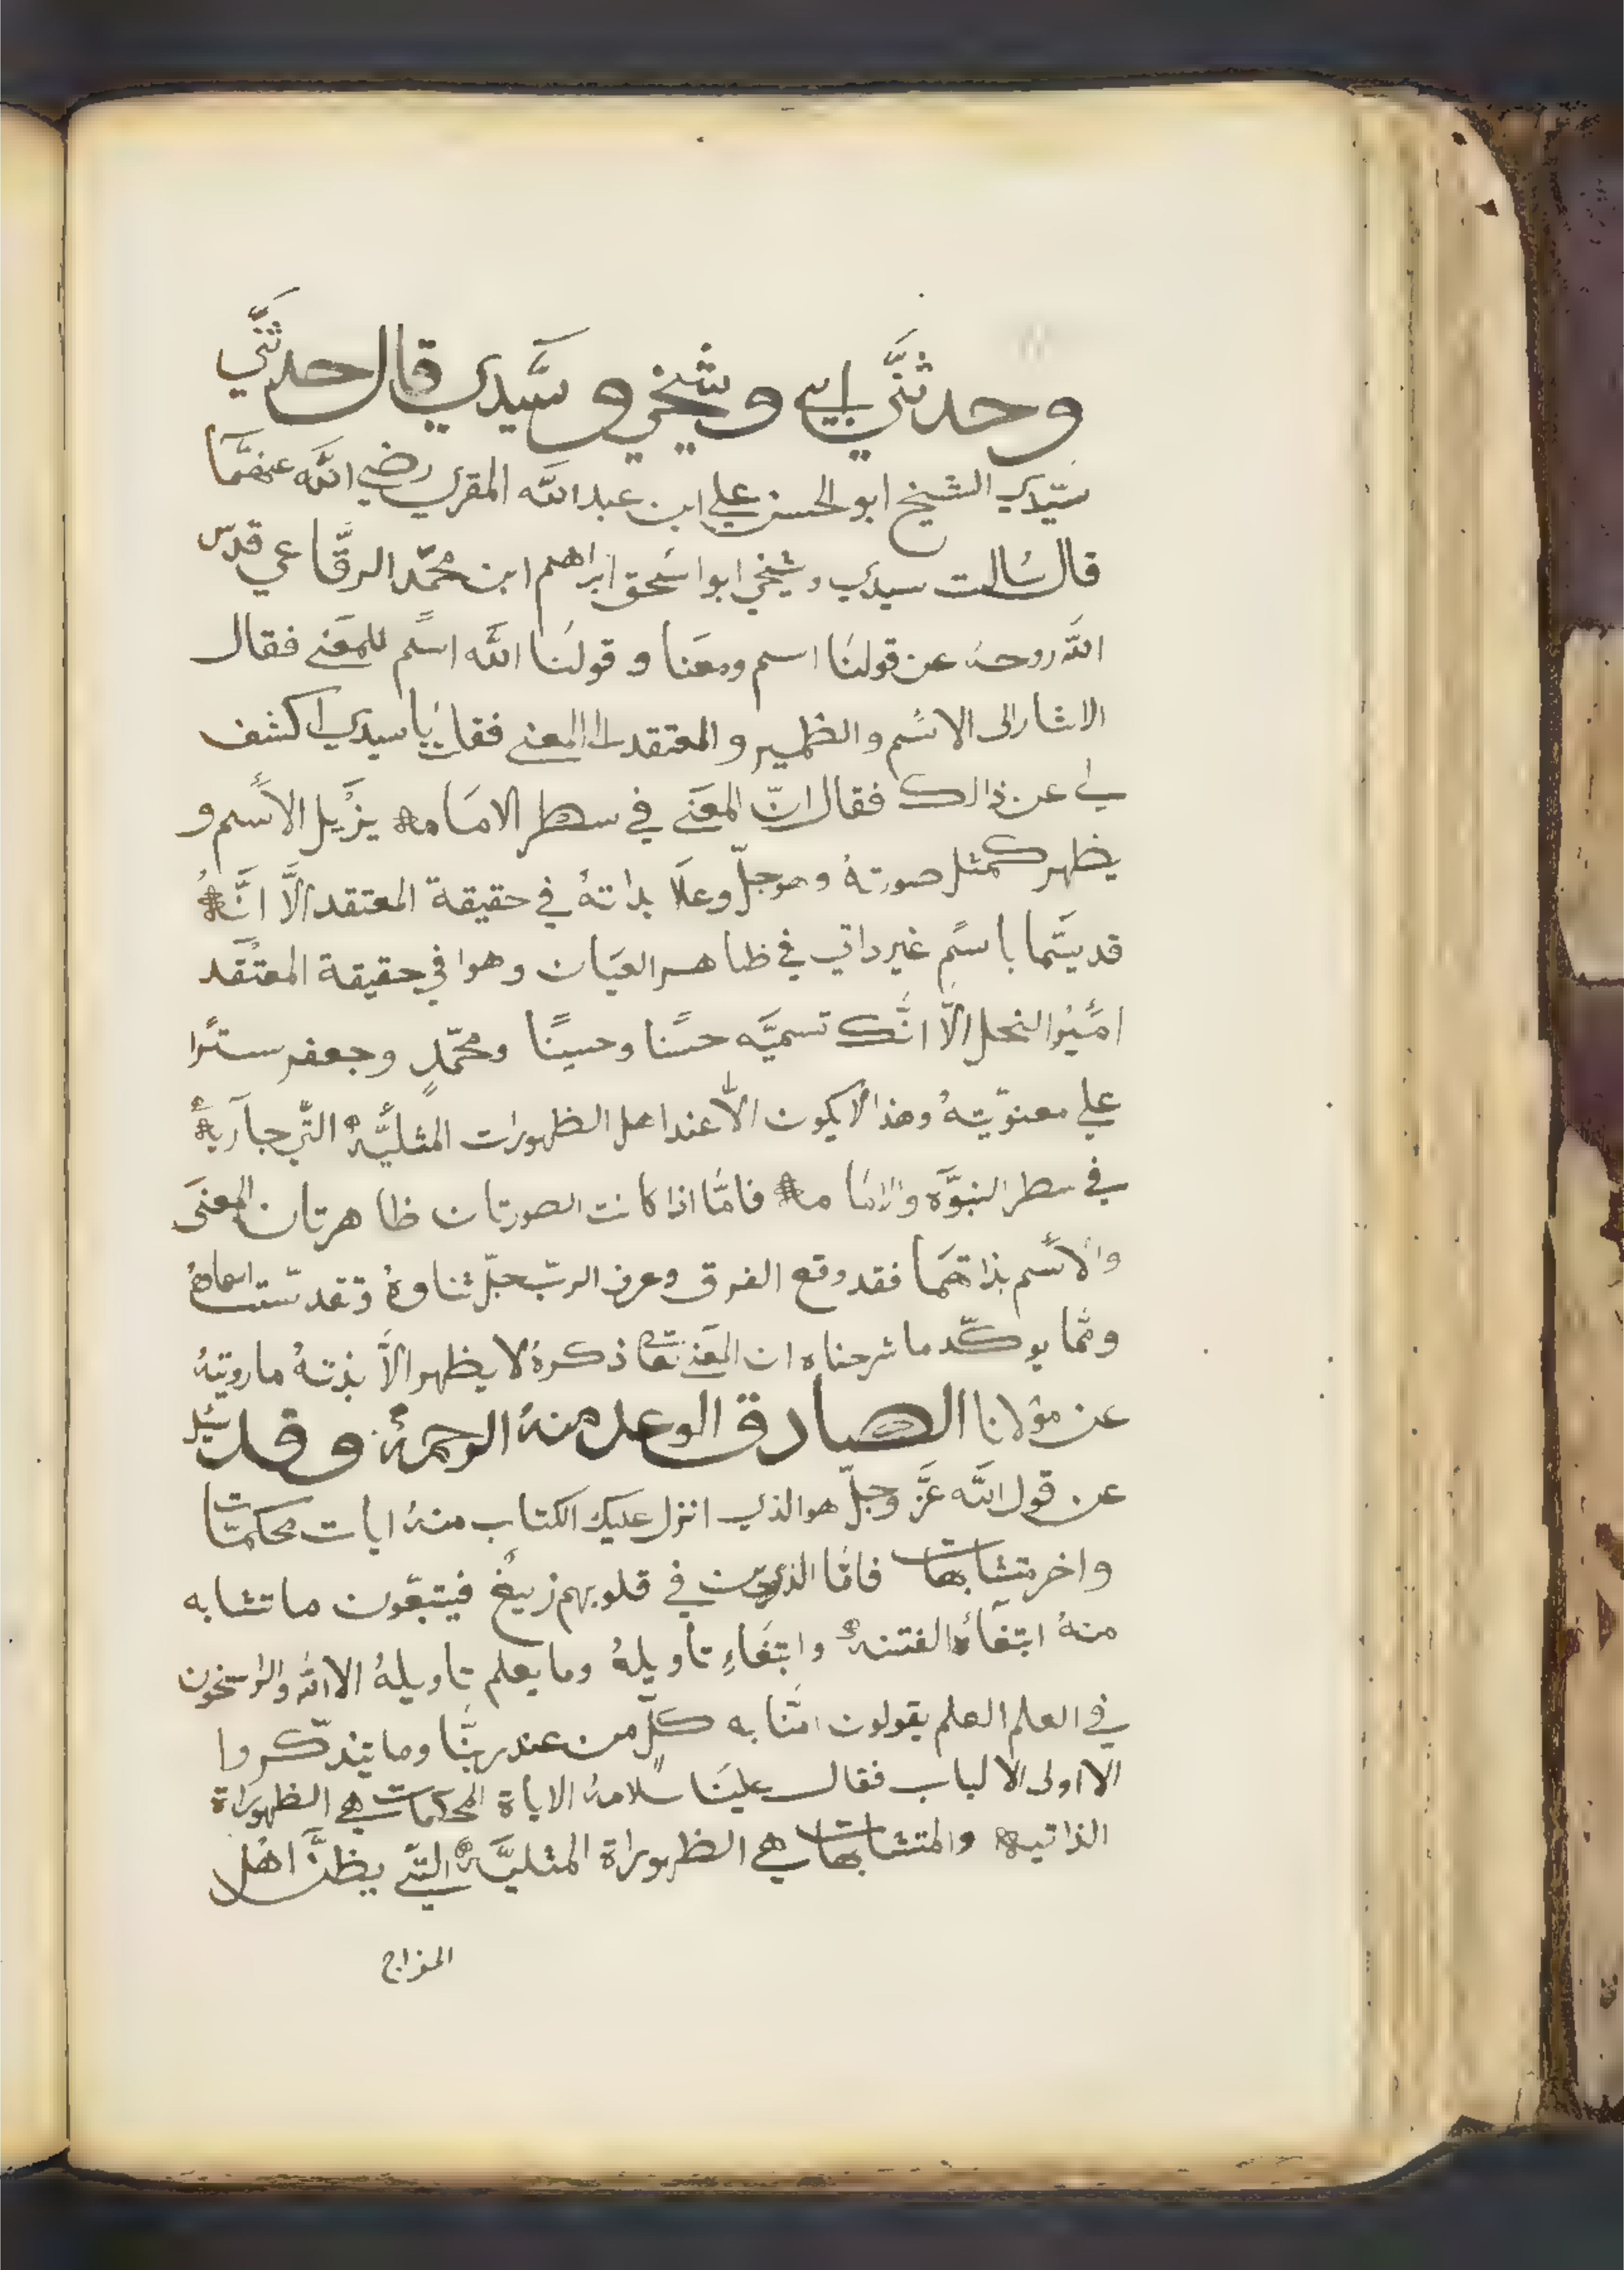 وحدثنّي ابي وشيخي وسيّدي قال حدثنّي
سيّدي الشيخ ابو الحسن علي ابن عبد اللّه المقري رضي اللّه عنهمّا
قال سالت سيدي وشيخي ابو اسحق ابراهيم ابن محمّد الرقّاعي قدّس
اللّه روحهُ عن قولنا اسم ومعنا وقولنا اللّه اسم للمعني فقال
الاشار الى الاسم والظمير والمعتقد الى المعني فقلت يا سيدي اكشف
لي عن ذالك فقال انّ المعني في سطر الامامه يزيل الاسم و
يظهر كمثل صورتهُ وهو جلّ وعلا بداتهُ في حقيقة المعتقد الّا انّهُ
قد يتّما باسم غير داتي في ظاهر العيان وهوا في حقيقة المعتقد
اميرُ النحل الّا انّك تسميّه حسنًا وحسينًا ومحمّدٍ وجعفر سترًا
علي معنويّتهُ وهذا لا يكون الّا عند اهل الظهورات المثليّه التّي جاريةً
في سطر النبوّه والامامه فامّا اذا كانت الصورتان ظاهرتان المعنى
والاسم بذاتهما فقد وقع الفرق وعرف الربّ جلّ ثناوهُ وتقدّست اسماهُ
وممّا يوكّد ما شرحناه ان المعني تعا ذكرهُ لا يظهر الّا بذتهُ ما رويتهُ
عن مولانا الصادق الوعد منهُ الرحمهُ وقد سُيل
عن قول اللّه عزّ وجلّ هو الذي انزل عليك الكتاب منهُ ايات محكمّات
واخر متشابهات فامّا الذين في قلوبهم زيغٌ فيتبعّون ما تشابه
منهُ ابتغاءُ الفتنه وابتغاءِ تاويلهُ وما يعلم تاويلهُ الا اللّه والراسخون
في العلم العلم يقولون امنّا به كلّ من عند ربنّا وما يتذكّروا
الا اولى الالباب فقال علينا سلامهُ الاياة المحكمات هي الظهوراة
الذاتيه والمتشابهات هي الظهوراة المثليّه التّي يظنّ اهل
المزاج